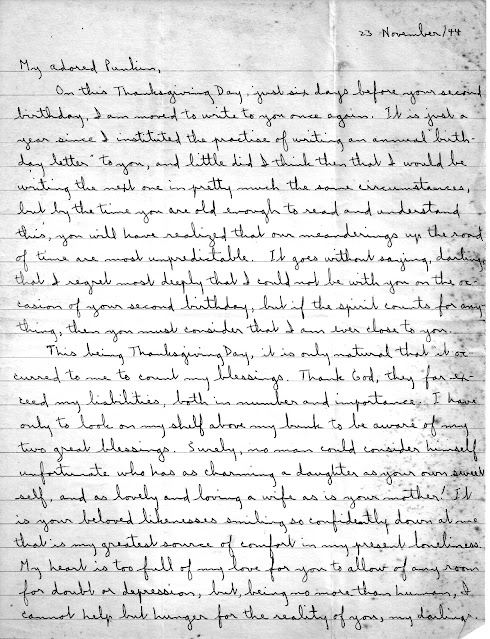 23 November/44
My adored Punkin,
On this Thanksgiving Day, just six days before your second
birthday, I am moved to write to you once again. It is just a
year since I instituted the practise of writing an annual "birth-
day letter" to you, and little did I think then that I would be
writing the next one in pretty much the same circumstances,
but by the time you are old enough to read and understand
this, you will have realized that our meanderings up the road
of time are most unpredictable. It goes without saying, darling,
that I regret most deeply that I could not be with you on the oc-
casion of your second birthday, but if the spirit counts for any-
thing, then you must consider that I am ever close to you.
This being Thanksgiving Day, it is only natural that it oc-
curred to me to count my blessings. Thank God, they far ex-
ceed my liabilities, both in number and importance. I have
only to look on my shelf above my bunk to be aware of my
two great blessings. Surely, no man could consider himself
unfortunate who has as charming a daughter as your own sweet
self, and as lovely and loving a wife as is your mother! It
is your beloved likenesses smiling so confidently down at me
that is my greatest source of comfort in my present loneliness.
My heart is too full of my love for you to allow of any room
for doubt or depression, but, being no more than human, I
cannot help but hunger for the reality of you, my darlings.